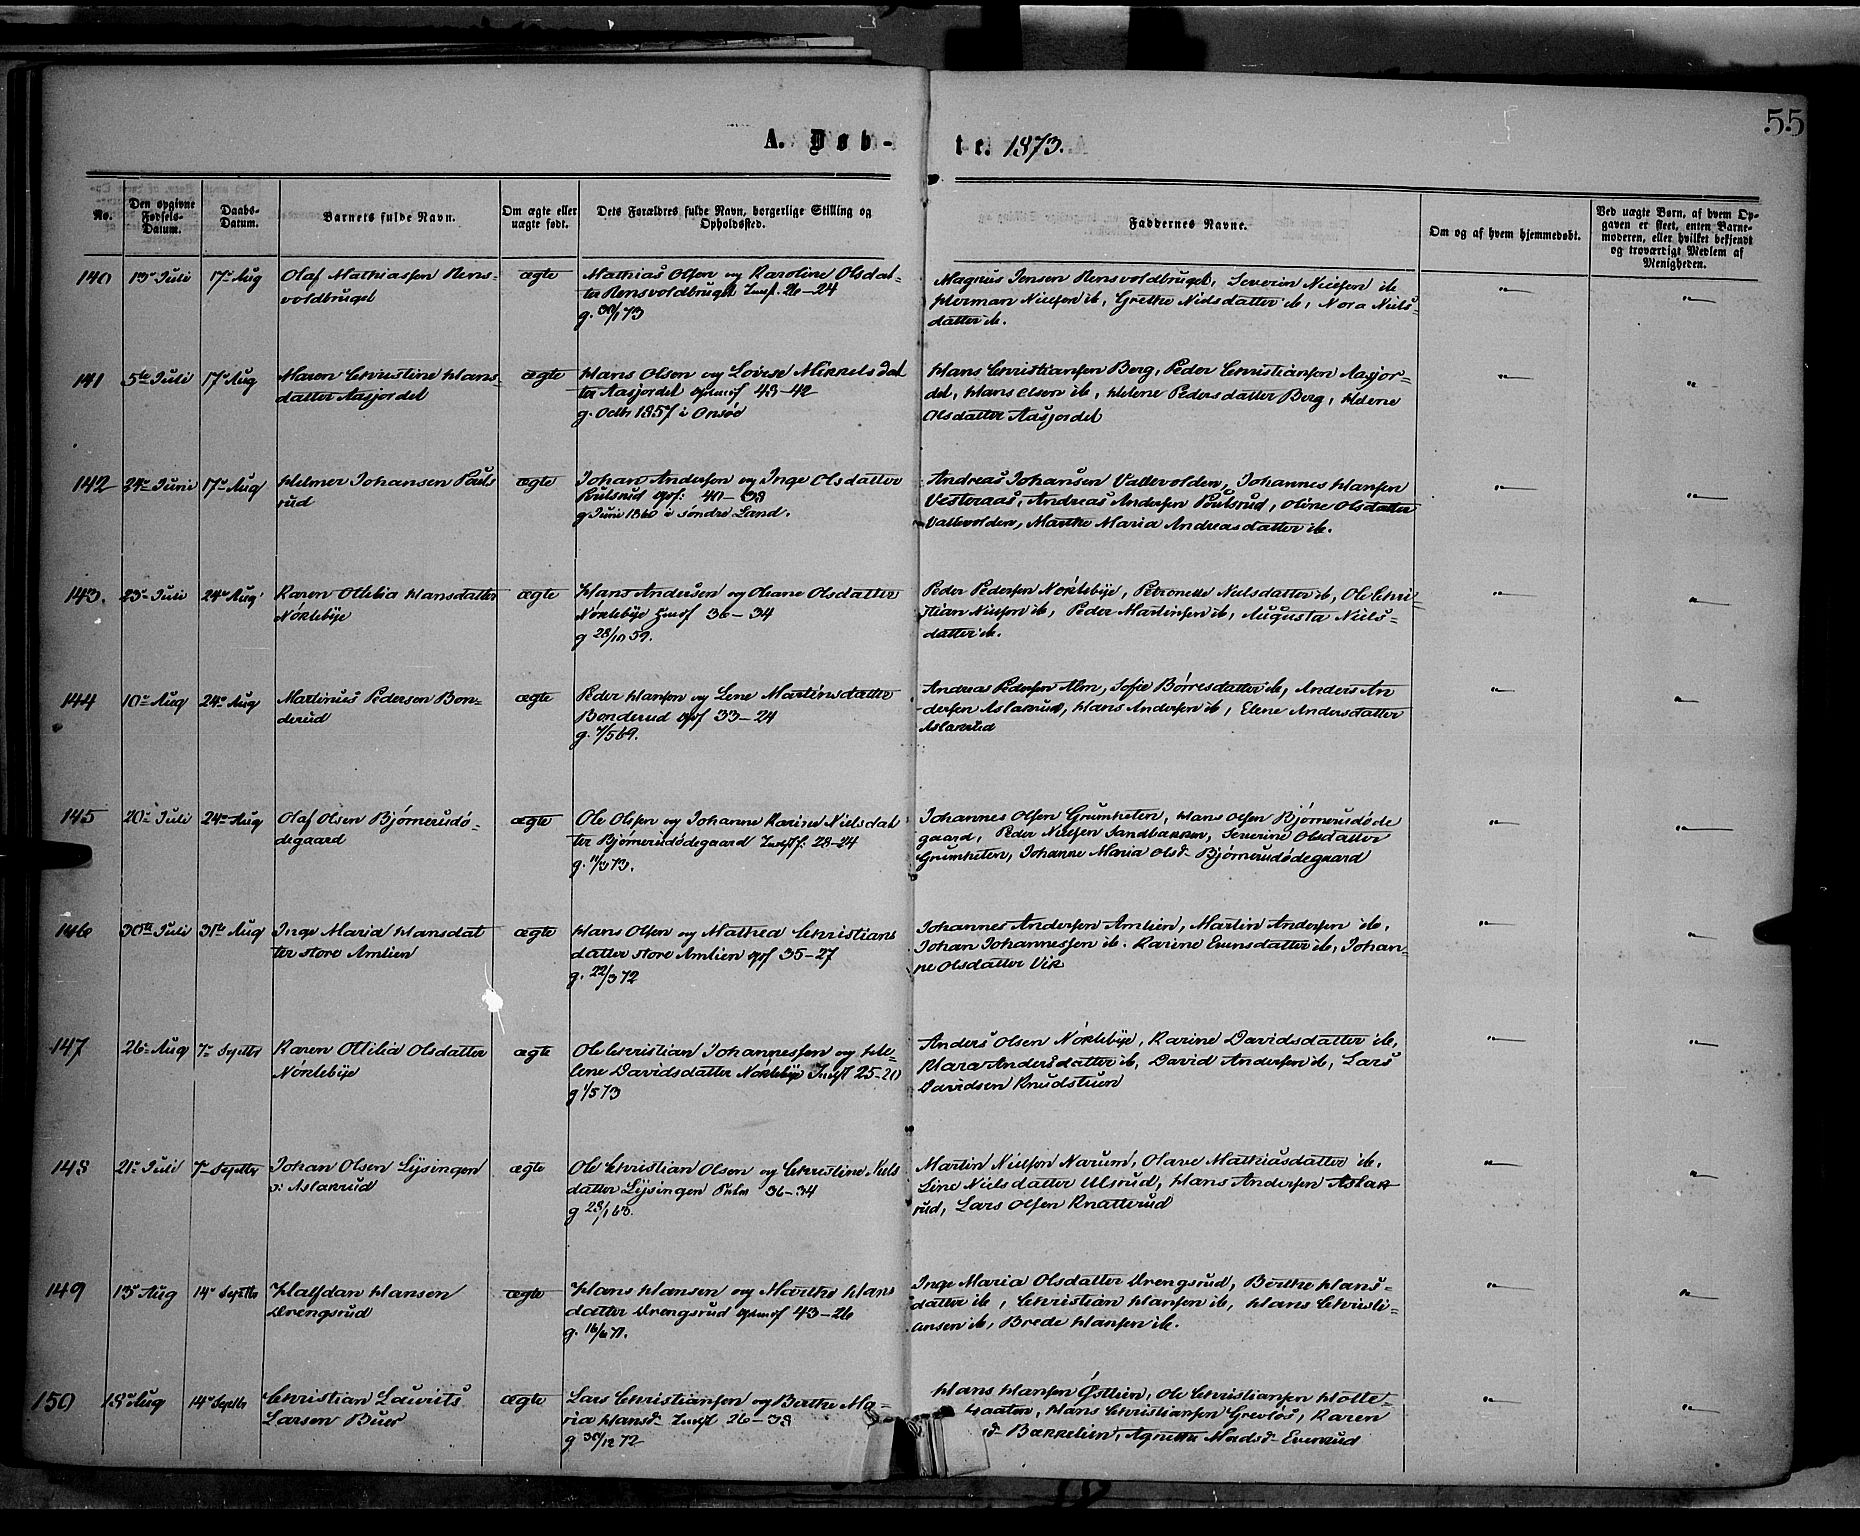 55
A. Døb-
te. 1873.
No.
Den opgivne Fødsels-Datum.
Daabs-Datum.
Barnets fulde Navn.
Om ægte eller uægte født.
Dets Forældres fulde Navn, borgerlige Stilling og Opholdssted.
Faddernes Navne.
Om og af hvem hjemmedøbt.
Ved uægte Børn, af hvem Opgaven er skeet, enten Barnemoderen, eller hvilket bekjendt og troværdigt Medlem af Menigheden.
140 13de Juli 17de Aug Olaf Mathiassen Rens-
voldbruget
ægte
Mathias Olsen og Karoline Olsdat-
ter Rensvoldbruget Inst. 26-24
g. 30/1 73
Magnus Jensen Rensvoldbruget, Severin Nielsen ib
Herman Nielsen ib, Grethe Nielsdatter ib, Nora Niels-
datter ib.
141 5te Juli 17de Aug Maren Christine Hans-
datter Aasjordet
ægte
Hans Olsen og Lovise Mikkelsdat
ter Aasjordet 43-42
g. Octbr 1857 i Onsøe
Hans Christiansen Berg, Peder Christiansen Aasjor-
det, Hans Olsen ib, Helene Pedersdatter Berg, Helene
Olsdatter Aasjordet
142 24de Juni 17de Aug Helmer Johansen Pouls
rud
ægte
Johan Andersen og Inge Olsdatter
Poulsrud gpf: 40-38
g Juni 1860 i søndre Land.
Andreas Johansen Vallevolden, Johannes Hansen
Vesteraas, Andreas Andersen Poulsrud, Oline Olsdatter
Vallevolden, Marthe Maria Andreasdatter ib.
143. 23de Juli 24de Aug Karen Ottilia Hansdatter
Nøklebye
ægte
Hans Andersen og Oleane Olsdatter
Nøklebye 36-34
g 28/10 59.
Peder Pedersen Nøklebye, Petronelle Nielsdatter ib, Ole Chri-
stian Nielsen ib, Peder Martinsen ib, Augusta Niels-
datter ib.
144 10de Aug 24de Aug Martinus Pedersen Bon-
derud
ægte
Peder Hansen og Lene Martinsdatter
Bonderud gpf 33-24
g. 7/5 69.
Andreas Pedersen Alm, Sofie Børresdatter ib, Anders An
dersen Aslakrud, Hans Andersen ib, Elene Andersdatter
Aslakrud
145 20de Juli 24de Aug Olaf Olsen Bjørnerudø-
degaard
ægte
Ole Olsen og Johanne Karine Nielsdat
ter Bjørnerudødegaard Instf. 28-24
g. 1/3 73.
Johannes Olsen Grumheten, Hans Olsen Bjørnerudøde
gaard, Peder Nielsen Sandbakken, Severine Olsdatter
Grumheten, Johanne Maria Olsd- Bjørnerudødegaard
146 30te Juli 31te Aug Inge Maria Hansdat
ter store Amlien
ægte
Hans Olsen og Mathea Christians
datter store Amlien gpf 35-27
g. 22/3 72
Johannes Andersen Amlien, Martin Andersen ib,
Johan Johannessen ib. Karine Evensdatter ib, Johan-
ne Olsdatter Vik
147 26de Aug 7de Septbr Karen Ottilia Olsdatter
Nøklebye
ægte
Ole Christian Johannessen og He-
lene Davidsdatter Nøklebye Instf 25-20
g 1/5 73
Anders Olsen Nøklebye, Karine Davidsdatter ib,
Klara Andersdatter ib, David Andersen ib, Lars
Davidsen Knudstuen
148 21de Juli 7de Septbr Johan Olsen Lysingen
Aslakrud
ægte
Ole Christian Olsen og Christine Niels
datter Lysingen 36-34
g 28/1 63.
Martin Nielsen Narum, Olave Mathiasdatter ib,
Line Nielsdatter Ulsrud, Hans Andersen Aslak
rud, Lars Olsen Knatterud
149 13de Aug 14de Septbr Halfdan Hansen
Drengsrud
ægte
Hans Hansen og Marthe Hans
datter Drengsrud 43-26
g. 16/6 71.
Inge Maria Olsdatter Drengsrud, Berthe Hans-
datter ib, Christian Hansen ib, Hans Christi-
ansen ib, Brede Hansen ib.
150 18de Aug 14de Septbr Christian Laurits
Larsen Buer
ægte
Lars Christiansen og Berthe Ma-
ria Hansd- Instf 26-38
g 30/12 72
Hans Hansen Østlien, Ole Christiansen Holte-
Hans Christiansen Grevløs, Karen
Bakkelien, Agnethe Madsd- Evenrud